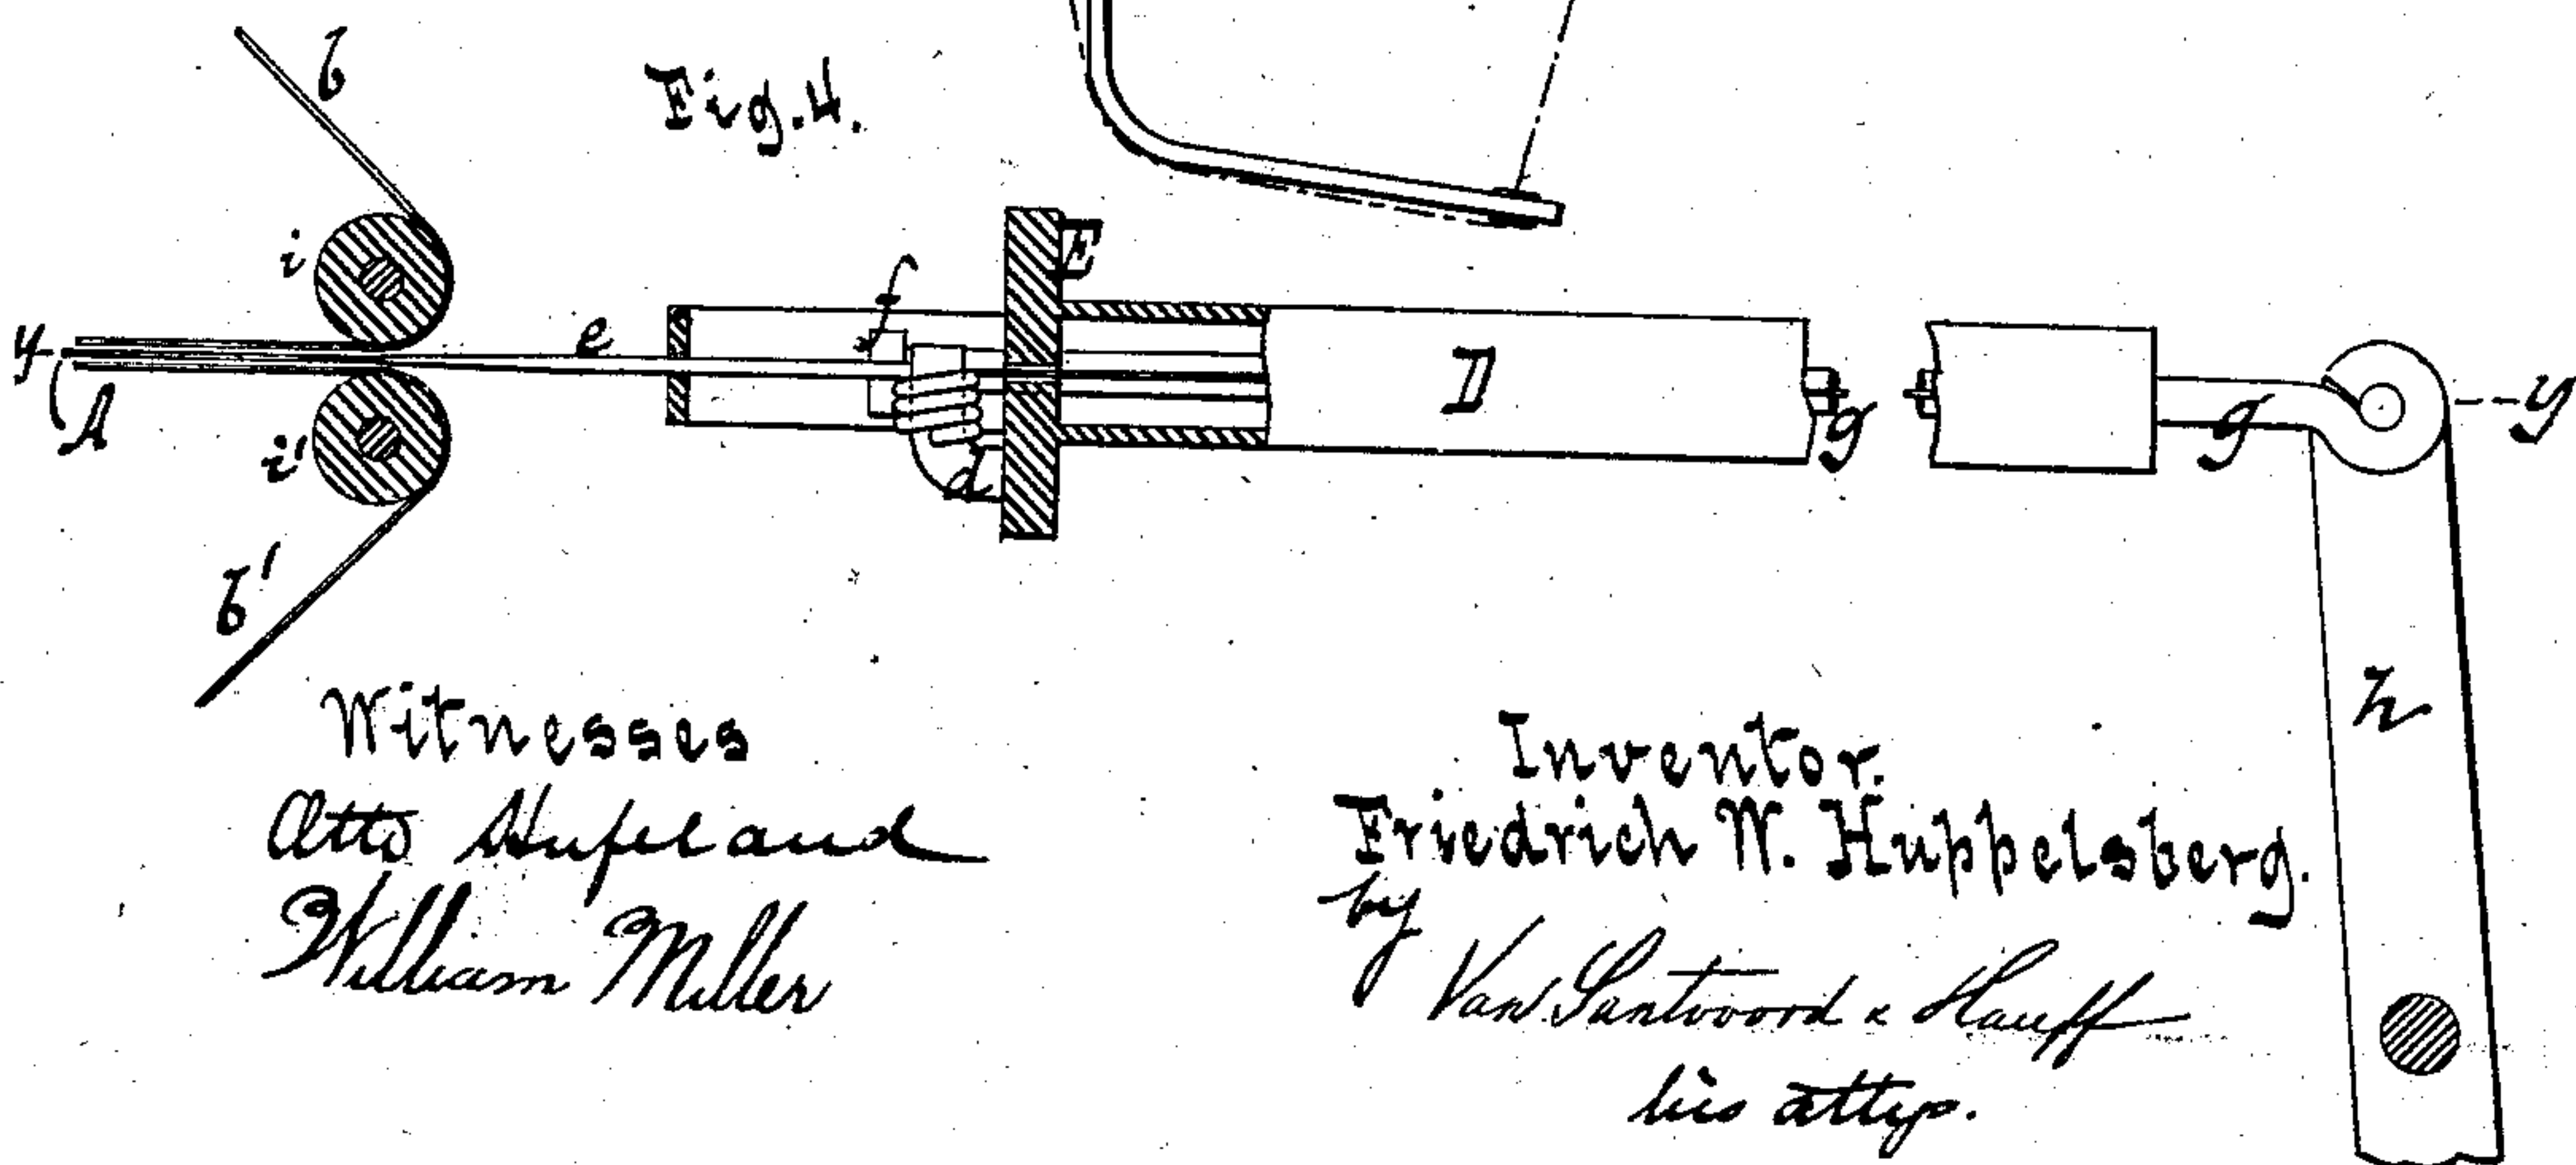 b
Fig. 4.
i
E
f
y
e
A
D
g
g
y
i'
d
b'
h
Witnesses
Otto Hufeland
William Miller
Inventor.
Friedrich W. Hüppelsberg.
by
Van Santvoord & Hauff
his attys.